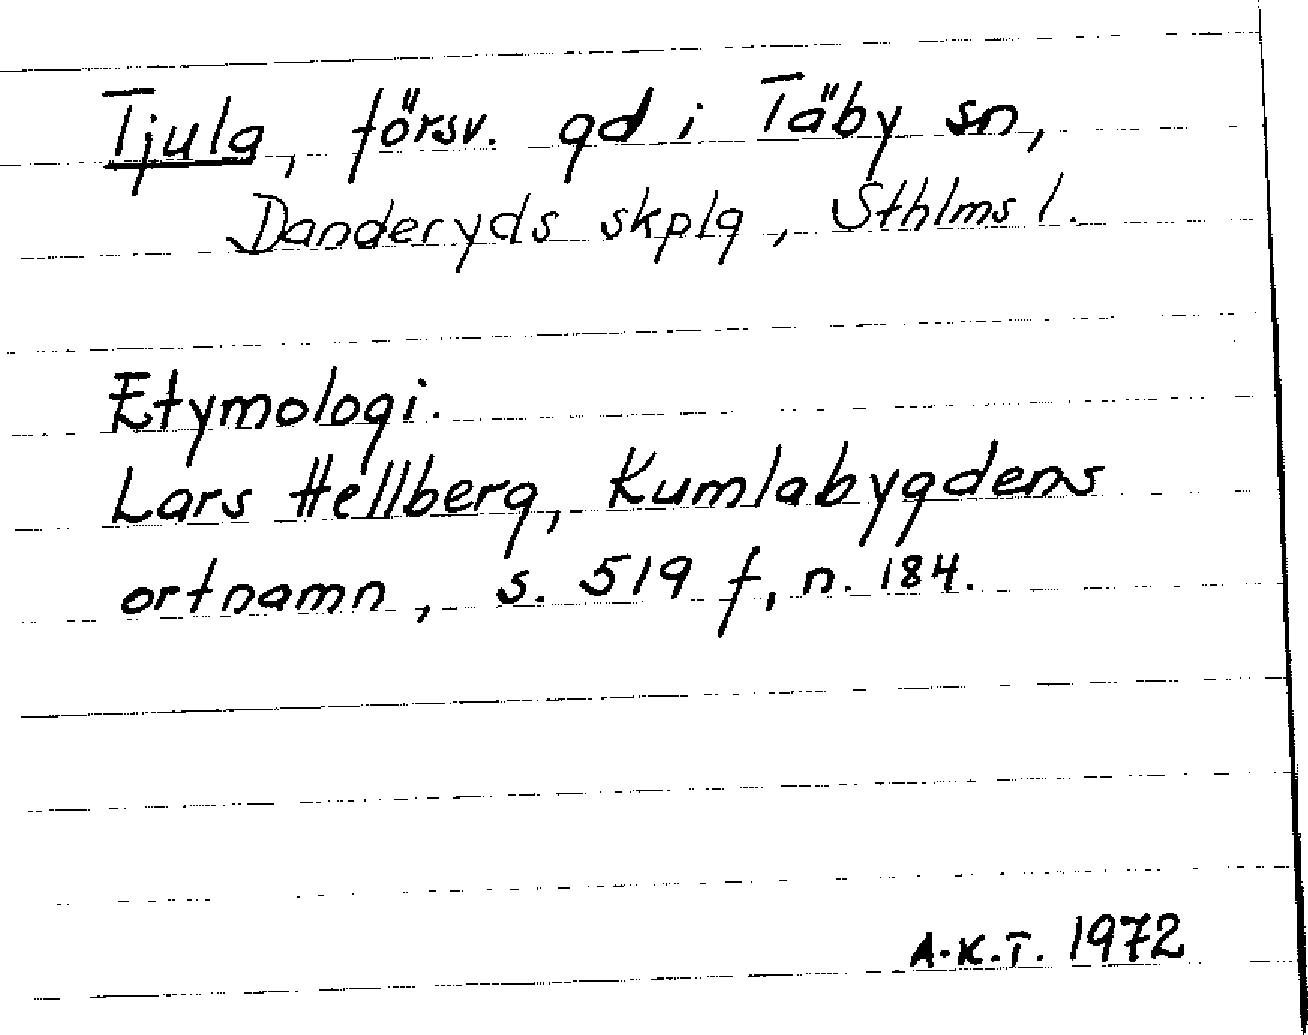 Tjula, försv. gd i Täby sn,
Danderyds skplg, Sthlms l.
Etymologi.
Lars Hellberg, Kumlabygdens
ortnamn, s. 519 f, n. 184.
A.K.T. 1972